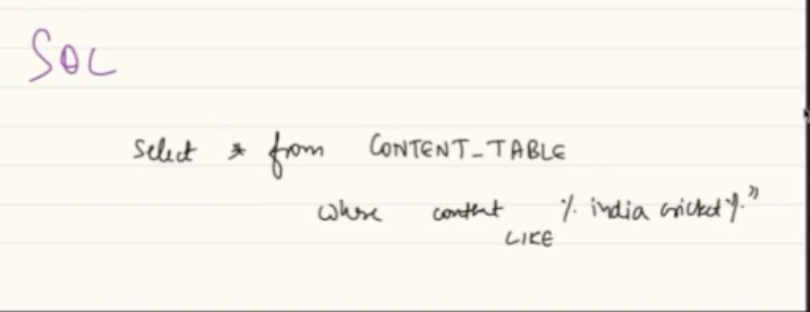 SQL
Select * from CONTENT_TABLE
where content LIKE % india cricket %"